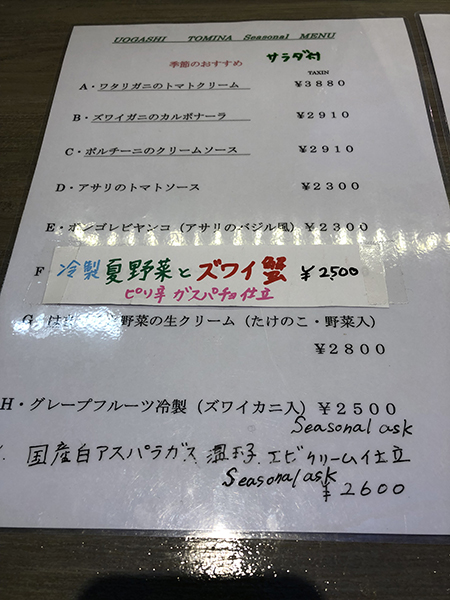 UOGASHI TOMINA Seasonal MENU
季節のおすすめ サラダ付
TAXIN
A・ワタリガニのトマトクリーム ¥3880
B・ズワイガニのカルボナーラ ¥2910
C・ポルチーニのクリームソース ¥2910
D・アサリのトマトソース ¥2300
E・ボンゴレビヤンコ（アサリのバジル風）¥2300
F
冷製 夏野菜とズワイ蟹 ¥2500
ピリ辛 ガスパチョ仕立
G・は 野菜の生クリーム（たけのこ・野菜入）
¥2800
H・グレープフルーツ冷製（ズワイカニ入）¥2500
Seasonal ask
国産白アスパラガス 温玉子 エビクリーム仕立
Seasonal ask
¥2600